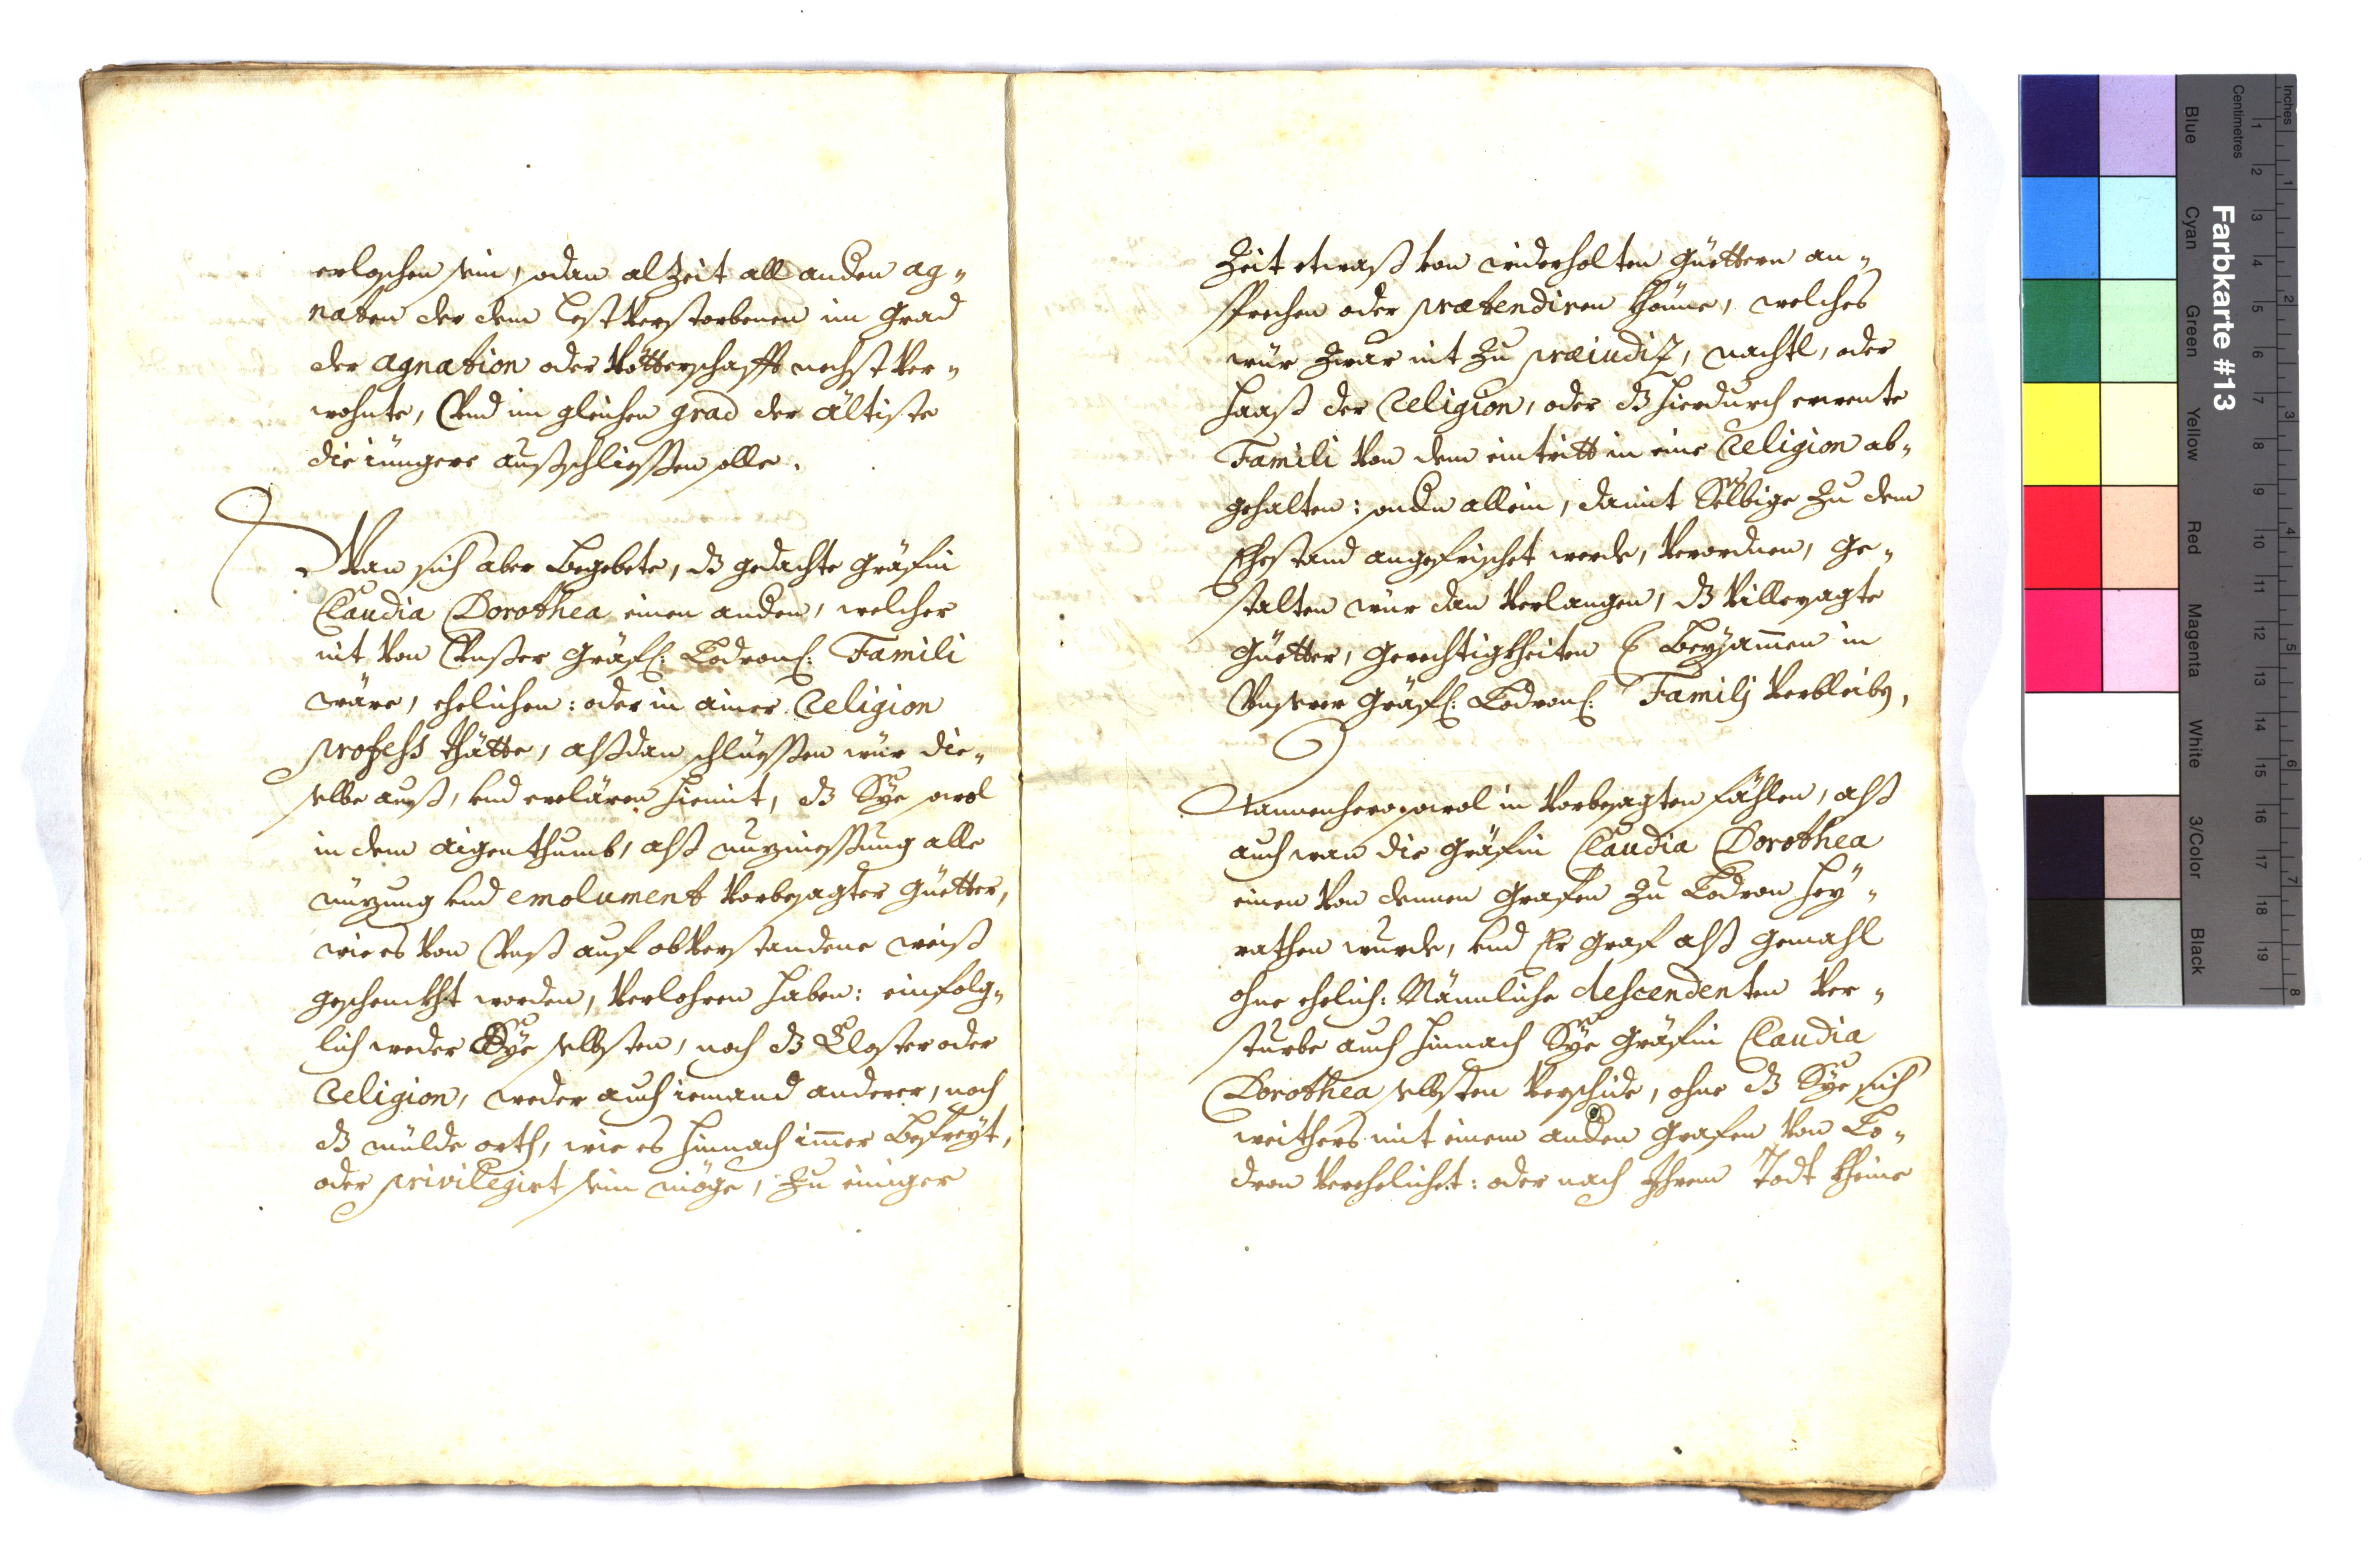 erloschen sein, odan alzeit all anden ag„
naten der dem lestverstorbenen im Grad
der agnation oder Vötterschafft nechst ver„
wohnte, Vnd im gleichen grad der ältiste
die iüngere außschliessen solle.
Wan sich aber begebete, dz gedachte Gräfin
Claudia Dorothea einen anden, welcher
nit von Vnßer Gräfl: Lodronl: Famili
wäre, ehelichen: oder in ainer Religion
profess thätte, alßdan schlüessen wür die„
selbe auß, vnd erclären hiemit, dz Sÿe sowol
in dem aigenthumb, alß nuzniessung alle
nuzung vnd emolument vorbesagter Güetter,
wie es von Vnß auf obverstandene weiß
geschenckht worden, verlohren haben: einfolg„
lich weder Sÿe selbsten, noch dz Closter oder
Religion, weder auch iemand anderer, noch
dz mülde orth, wie es hinnach im̅er befreÿt,
oder privilegirt sein möge, zu einiger
Zeit etwaß von widerholten Güettern an„
sprechen oder prætendiren khönne, welches
wür zwar nit zu præiudiz, nachtl, oder
haaß der Religion, oder dz hierdurch ernente
Famili von dem eintritt in eine Religion ab„
gehalten: sondn allein, damit Selbige zu dem
Ehestand angefrischet werde, verordnen, ge„
stalten wür dan verlangen, dz villesagte
Güetter, Gerechtigkheiten &c beysam̅en in
Vnserer Gräfl: Lodronl: Familj verbleibe,
Dannenhero sowol in vorbesagten fählen, alß
auch wan die Gräfin Claudia Dorothea
einen von dennen Grafen zu Lodron heÿ„
rathen wurde, vnd Er Graf alß Gemahl
ohne ehelich: Männliche descendenten ver„
sturbe auch hinnach Sÿe Gräfin Claudia
Dorothea selbsten verschide, ohne dz Sÿe sich
weithers mit einem anden Grafen von Lo„
dron verehelichet: oder nach Ihrem Todt kheine
Farbkarte #13
Inches 1 2 3 4 5 6 7 8
Centimetres 1 2 3 4 5 6 7 8 9 10 11 12 13 14 15 16 17 18 19
Blue
Cyan
Green
Yellow
Red
Magenta
White
3/Color
Black